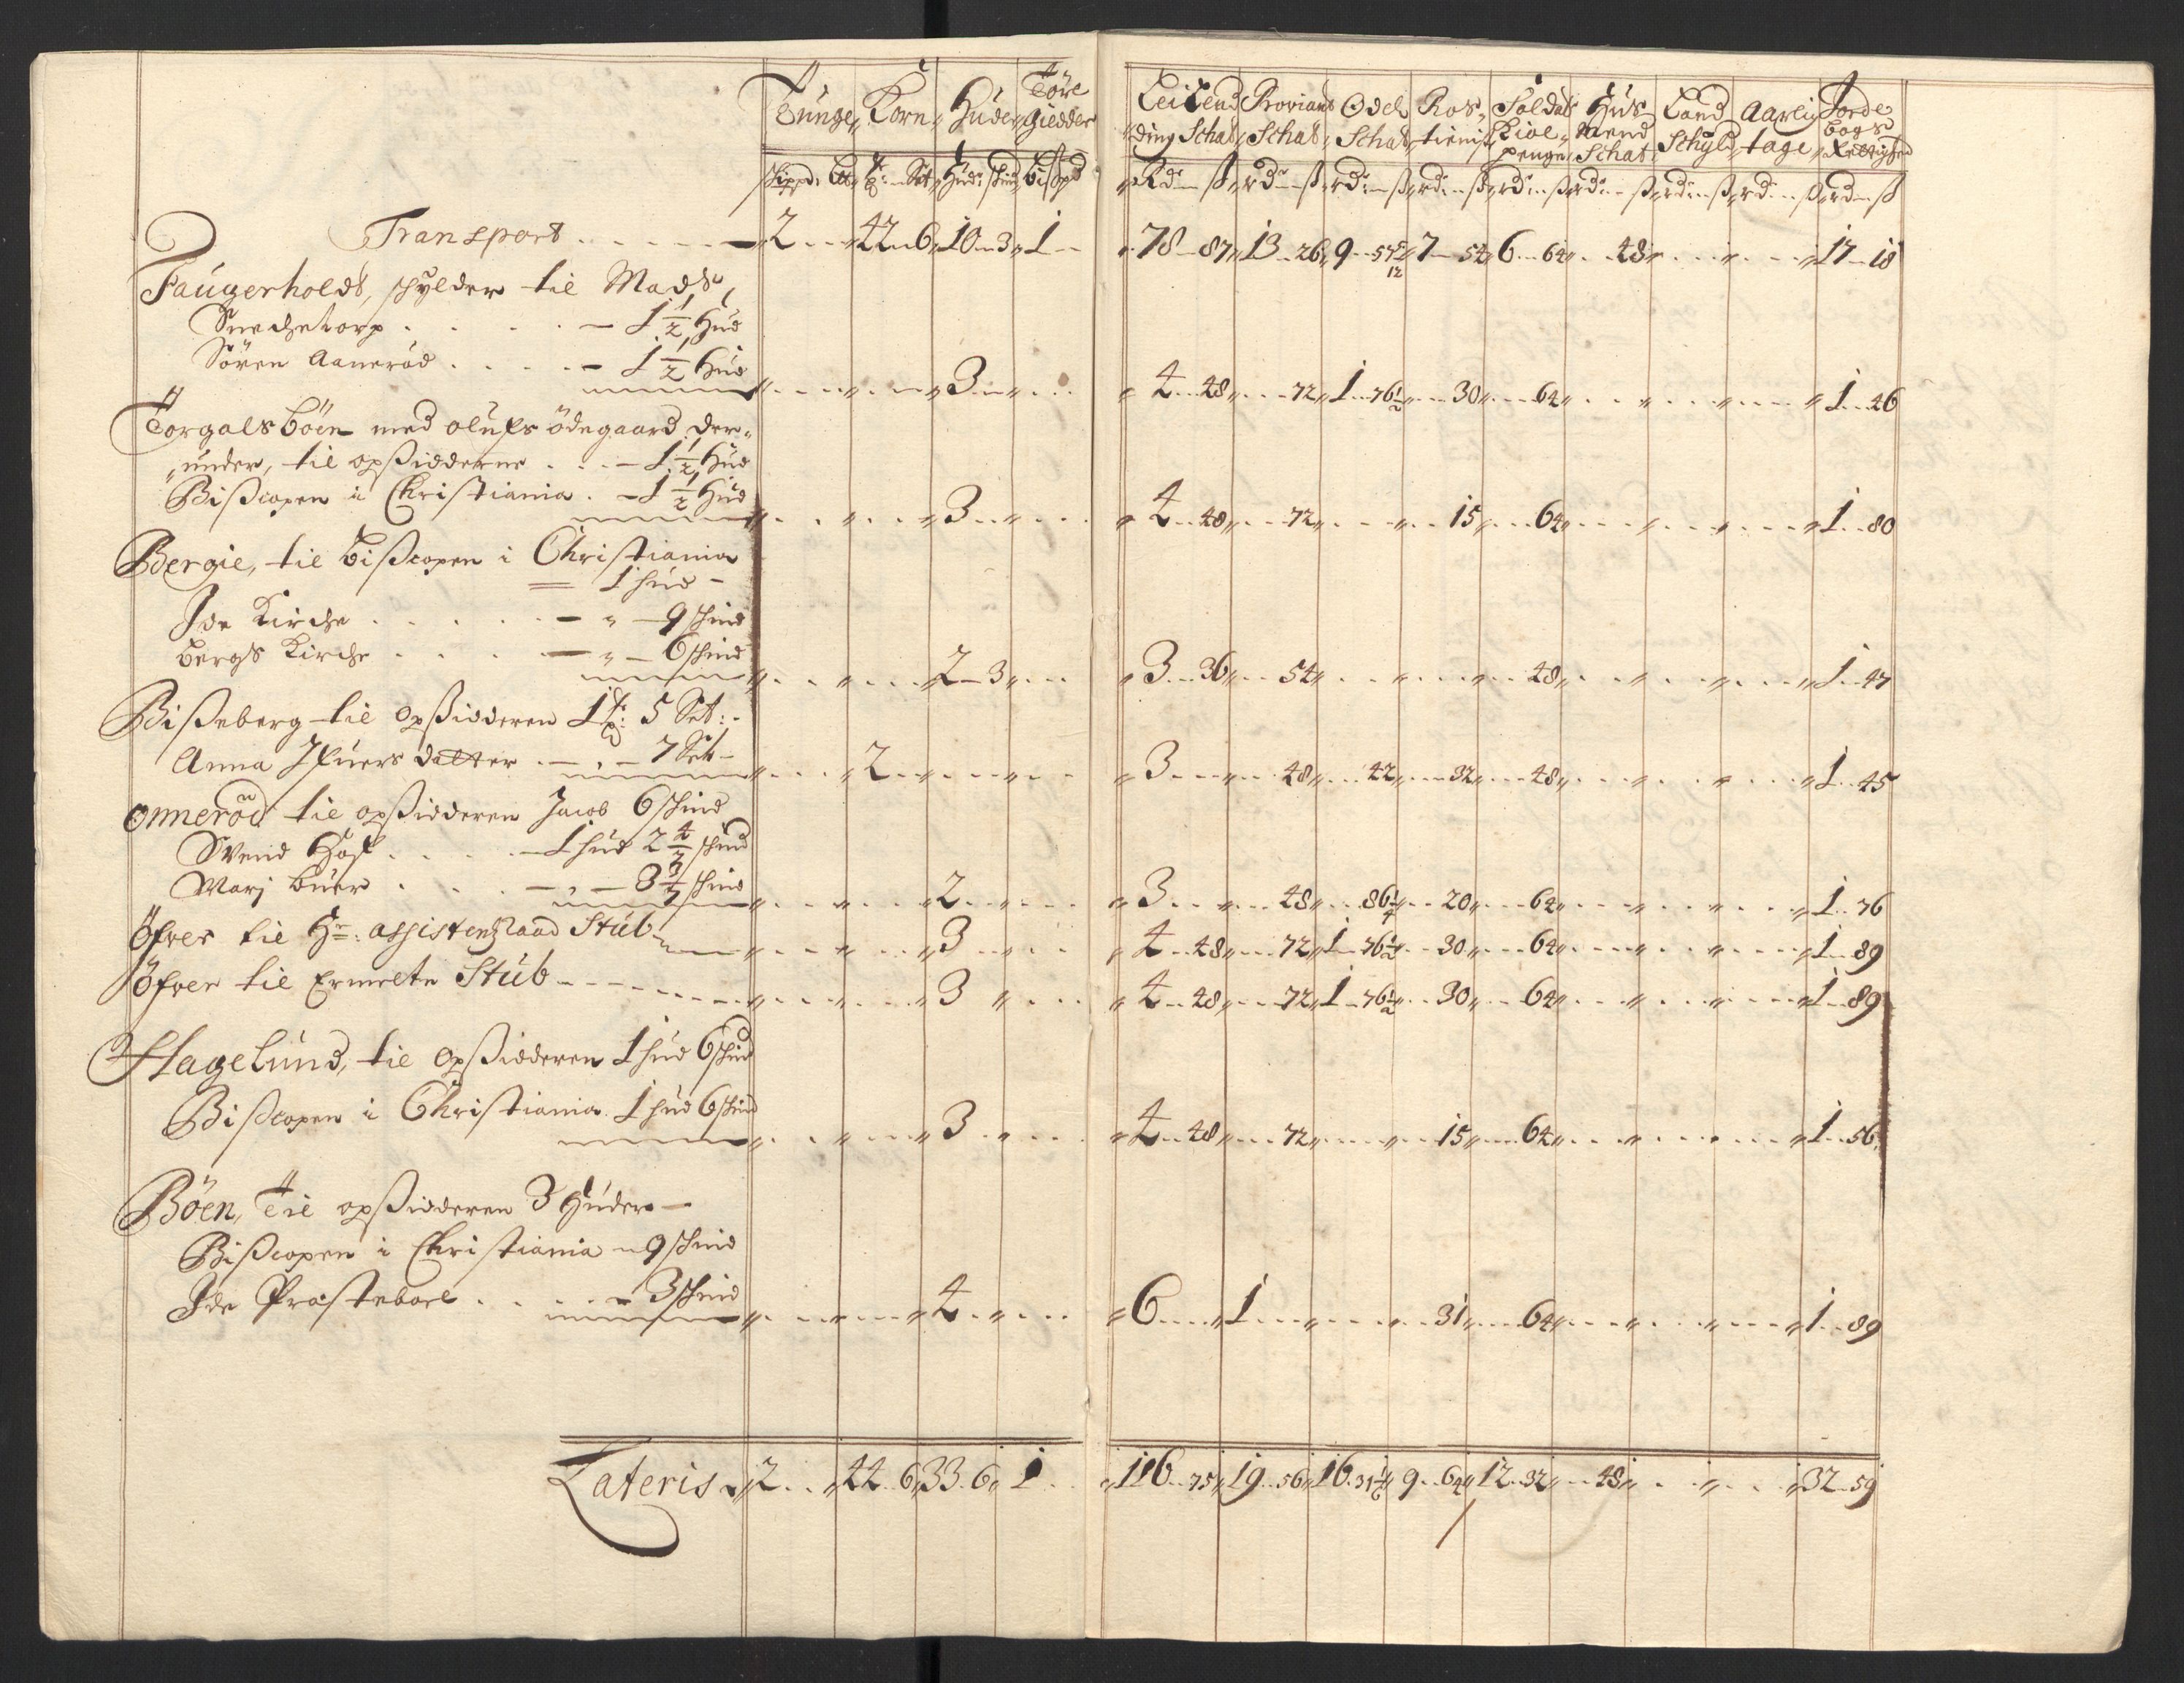 Tunge Korn Huder Töre giedder
Leilending Schat Proviant Schat Odel Schat Ros tieniste Soldat Kiole penge Hus mend Schat Land Schyld Aarlig tage Jorde bogs Rettighed
Transport 2 42 6 10 3 1 78 87 13 26 9 57 5/12 7 54 6 64 48 17 18
Faugerholdt, schylder til Mads
Snechetorp 1 1/2 hud
Sören Aaneröd 1 1/2 hud 3 4 48 72 1 76 1/2 30 64 1 46
Torgalsböen med olufs ödegaard der
under, til opsidderne 1 1/2 hud
Biscopen i Christiania 1 1/2 hud 3 4 48 72 15 64 1 80
Bergie, til Biscopen i Christiania
1 hud
Ide Kirche 9 schind
Bergs Kirche 6 schind 2 3 3 36 54 48 1 47
Biseberg til opsidderen 1 5 Set:
Anna Ifuers datter 7 Set 2 3 48 42 32 48 1 45
Onneröd til opsidderen Jacob 6 schind
Svend Host 1 hud 2 4/7 schind
Marj buer 3 3/7 schind 2 3 48 86 1/4 20 64 1 76
Öfver til Hr: assistentzraad Stub 3 4 48 72 1 76 1/2 30 64 1 89
Öfver til Ermelte Stub 3 4 48 72 1 76 1/2 30 64 1 89
Hagelund, til opsidderen 1 hud 6 schind
Biscopen i Christiania 1 hud 6 schind 3 4 48 72 15 64 1 56
Böen, til opsidderen 3 huder
Biscopen i Christiania 9 schind
Ide Præstebol 3 schind 4 6 1 31 64 1 89
Lateris 2 44 6 33 6 1 116 75 19 56 16 31 1/6 9 64 12 32 48 32 59